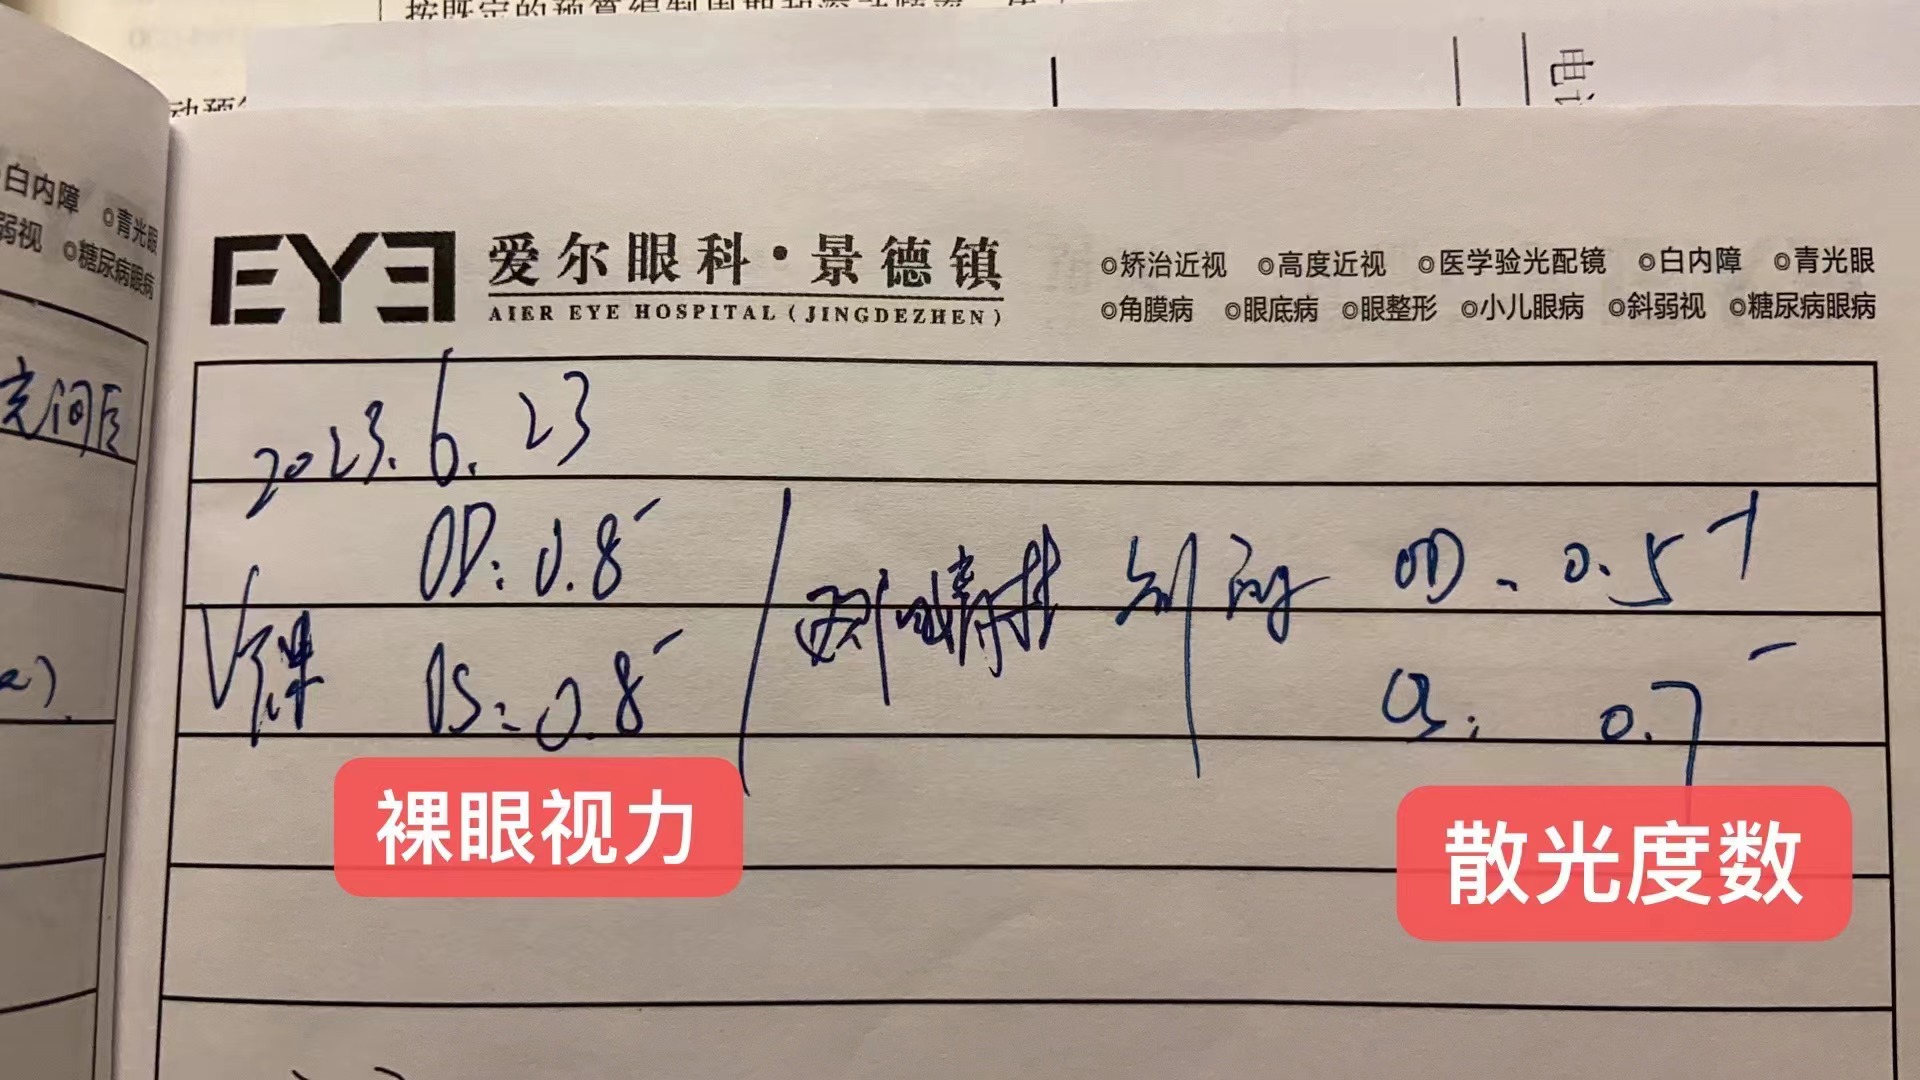 按既定的预算编制周期和滚动频率
动预
电
白内障 ◎青光眼
弱视 ◎糖尿病眼病
EYE 爱尔眼科·景德镇
AIER EYE HOSPITAL (JINGDEZHEN)
◎矫治近视 ◎高度近视 ◎医学验光配镜 ◎白内障 ◎青光眼
◎角膜病 ◎眼底病 ◎眼整形 ◎小儿眼病 ◎斜弱视 ◎糖尿病眼病
2023.6.23
V裸 OD: 0.8⁻
OS: 0.8⁻
OD. 0.5
OS: 0.7⁻
裸眼视力
散光度数